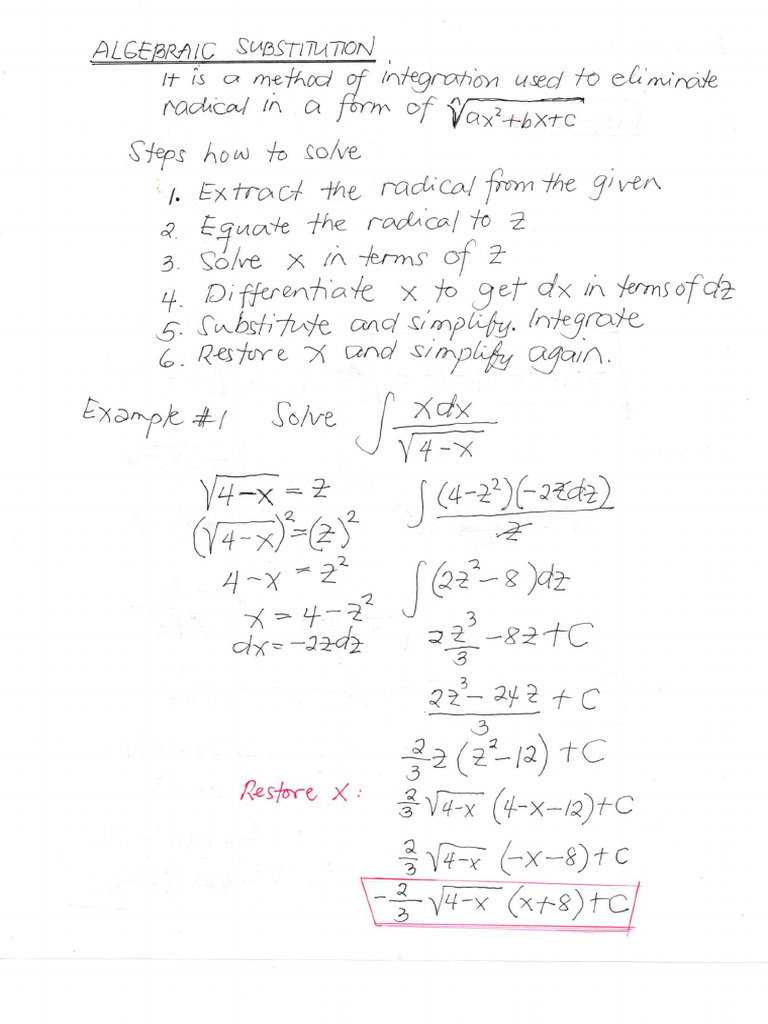 ALGEBRAIC SUBSTITUTION
It is a method of integration used to eliminate
radical in a form of ⁿ√(ax²+bx+c)
Steps how to solve
1. Extract the radical from the given
2. Equate the radical to z
3. Solve x in terms of z
4. Differentiate x to get dx in terms of dz
5. Substitute and simplify. Integrate
6. Restore x and simplify again.
Example #1 Solve ∫ xdx/√(4-x)
√(4-x) = z
(√(4-x))² = (z)²
4-x = z²
x = 4-z²
dx = -2zdz
∫ (4-z²)(-2zdz)/z
∫(2z²-8)dz
2z³/3 -8z+C
(2z³-24z)/3 + C
2/3 z(z²-12) +C
Restore x: 2/3 √(4-x) (4-x-12)+C
2/3 √(4-x) (-x-8)+C
-2/3 √(4-x) (x+8)+C